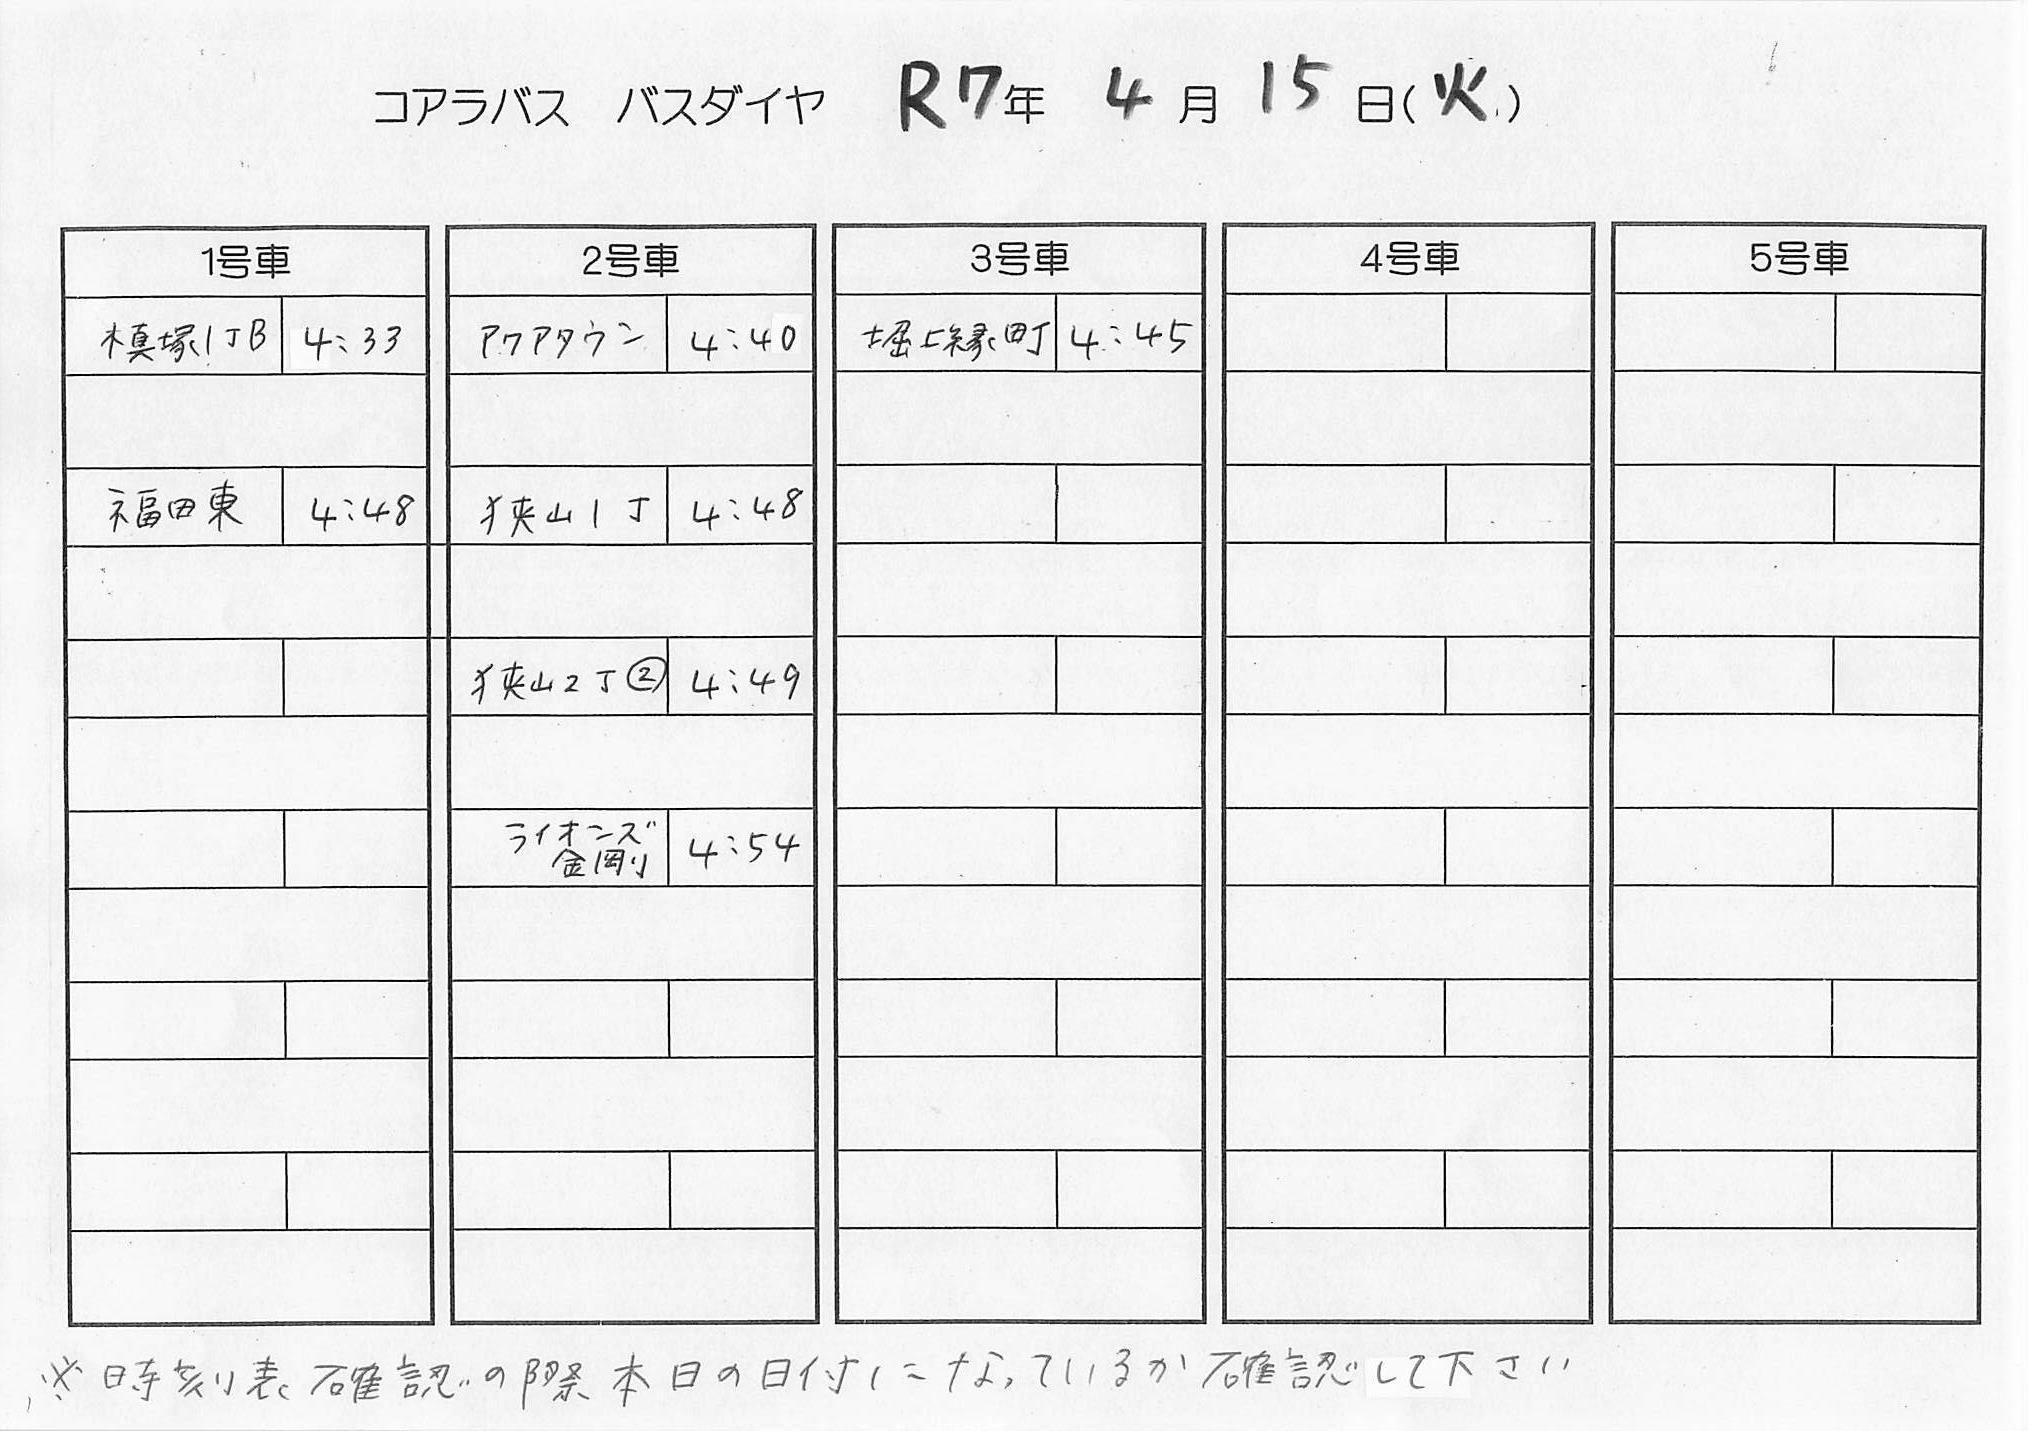 コアラバス バスダイヤ R7年 4月15日(火)
1号車 2号車 3号車 4号車 5号車
槙塚1丁B 4:33 アクアタウン 4:40 堀上緑町 4:45
福田東 4:48 狭山1丁 4:48
狭山2丁② 4:49
ライオンズ
金剛 4:54
※時刻表確認の際本日の日付になっているか確認して下さい